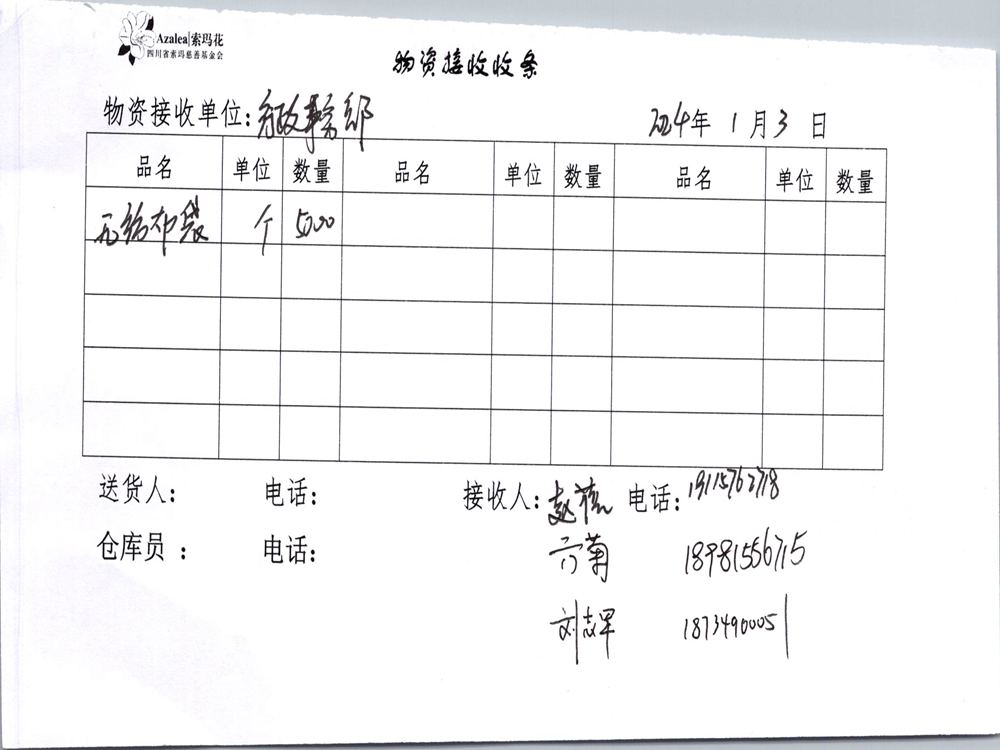 Azalea|索玛花
四川省索玛慈善基金会
物资接收收条
物资接收单位: 行政事务部 2024年 1 月 3 日
品名 单位 数量 品名 单位 数量 品名 单位 数量
布袋 个 5000
送货人: 电话: 接收人: 赵 电话: 19115762718
仓库员 : 电话: 菊 18981556715
刘志军 18734900051